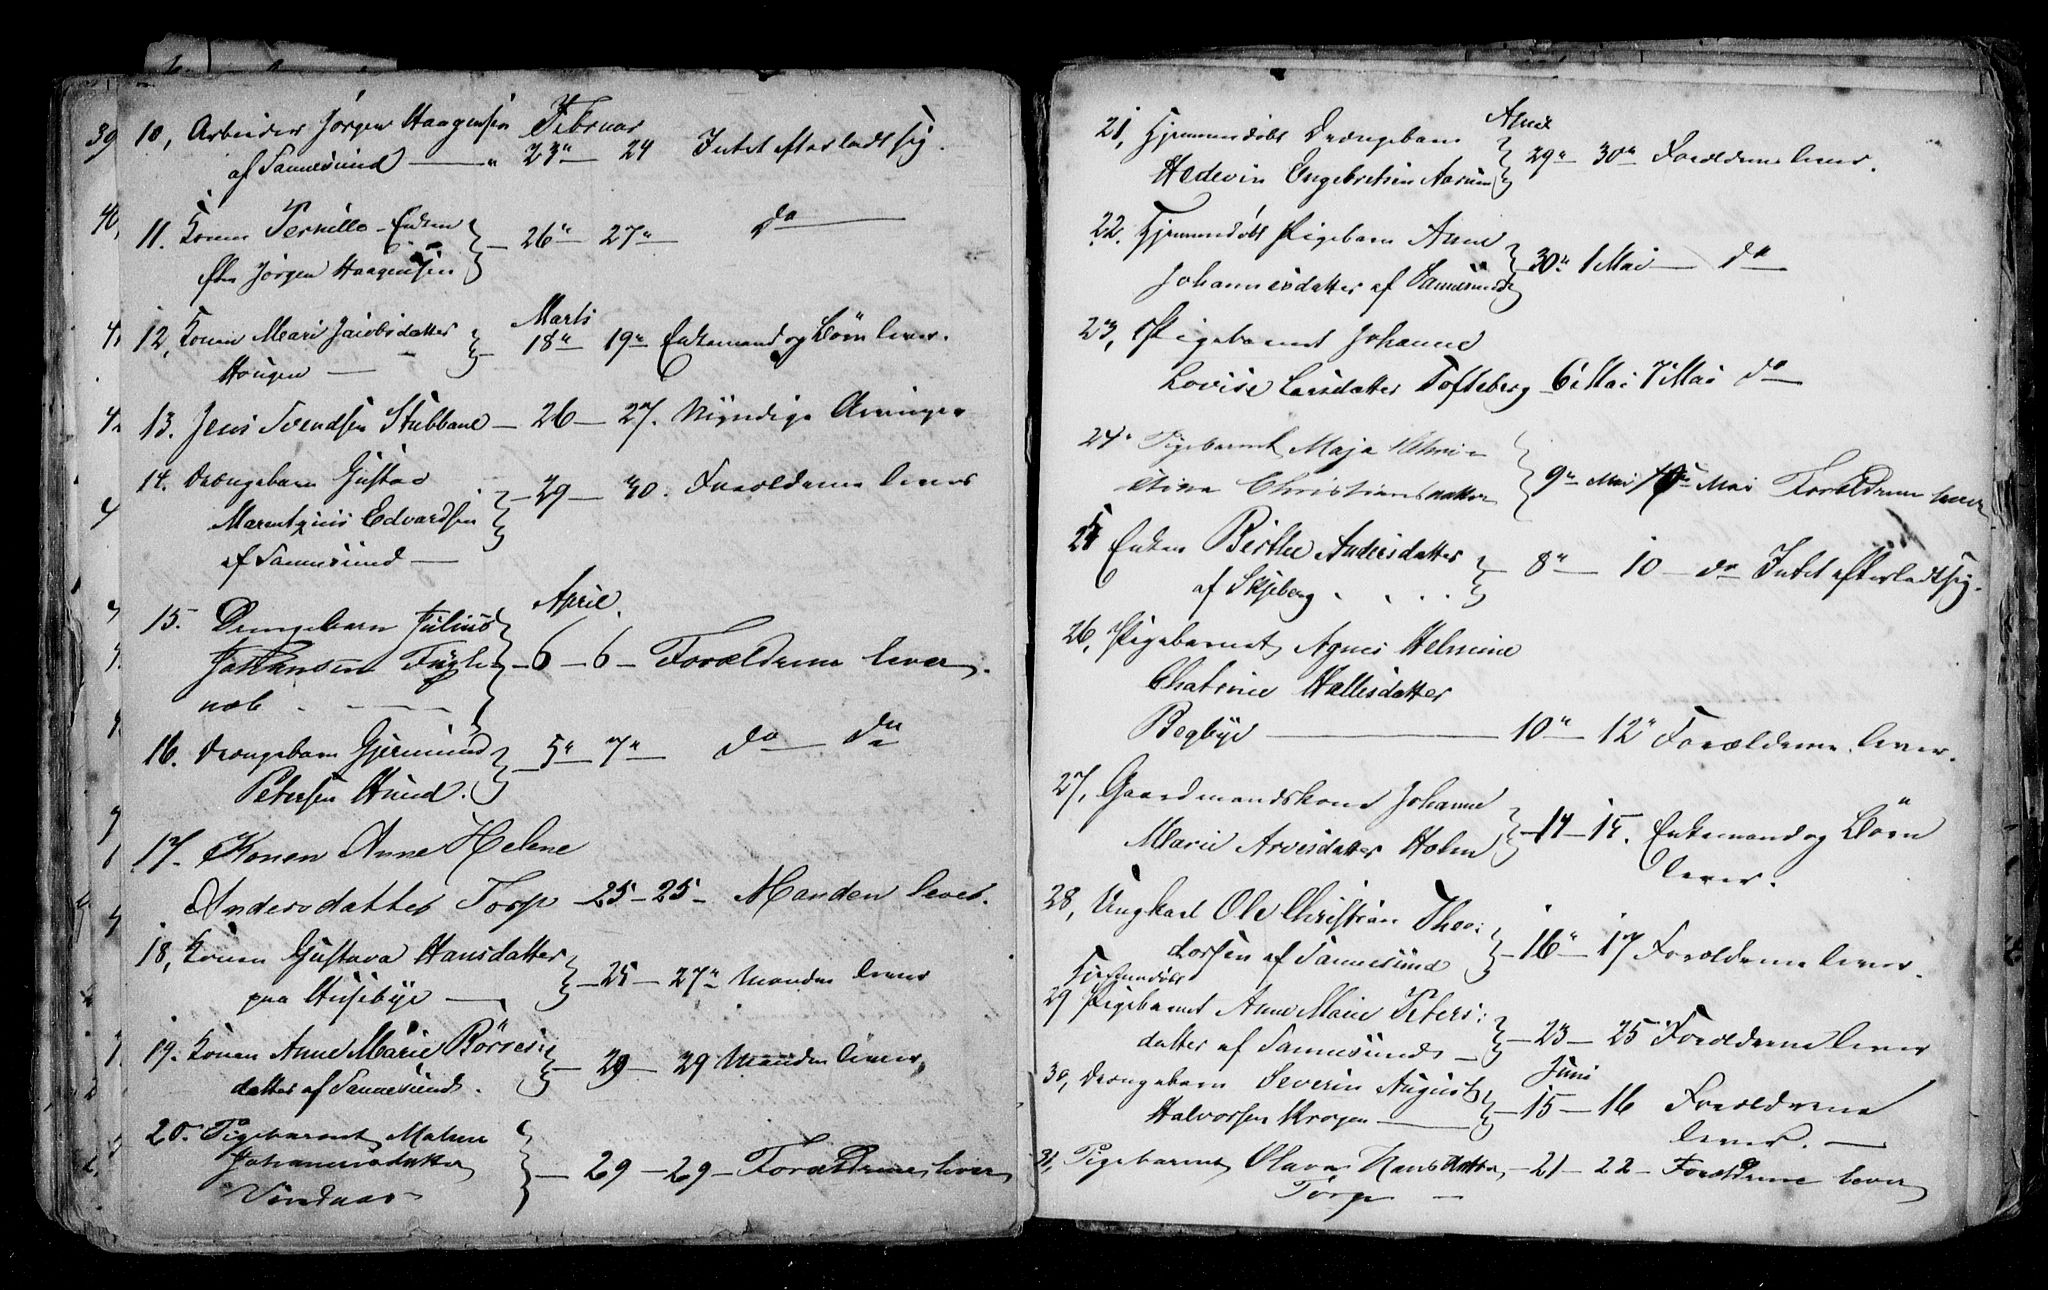 39 10, Arbeider Jørgen Haagensen Februar
af Sannesund — " 23" — 24 Intet efterladt sig.
40, 11. Konen Pernille Enken
efter Jørgen Haagensen — 26" — 27" — do —
12, Konen Mari Jacobsdatter Marts
Hougen — 18" — 19" Enkemand og Børn lever.
13. Jens Svendsen Stubbane — 26 — 27. Myndige Arvinger
14. Drængebarn Gustav
Marentzius Edvardsen — 29 — 30. Forældrene lever
af Sannesund —
15. Drengebarn Julius April.
Johansen Fugle — 6 — 6 — Forældrene lever.
næb . —
16. Drængebarn Gjermund — 5" — 7" — do — do
Petersen Hund.
17. Konen Anne Helene
Andersdatter Torp — 25 — 25 — Manden lever.
18, Konen Gustava Hansdatter
paa Husebye — — 25 — 27" Manden lever
19. Konen Anne Marie Börres:
datter af Sannesund. — 29 — 29 Manden lever,
20. Pigebarnet Malene
Johannesdatter — 29 — 29 — Forældrene lever
21, Hjemmedøbt Drængebarn April
Hedevin Engebretsen Aarum 29" 30" Forældrene lever.
22. Hjemmedøbt Pigebarn Anne
Johannesdatter af Sannesund — 30" 1 Mai — do —
23, Pigebarnet Johanne
Lovise Larsdatter Tofteberg 6 Mai 7 Mai do —
24. Pigebarnet Maja
Christiansdatter 9" Mai Mai Forældrene lever
25 Enken Berthe Andersdatter
af Skjeberg . . . . 8" — 10 — do Intet efterladt sig.
26, Pigebarnet Agnes Helmine
Chatrine Hellesdatter
Begbye — 10" — 12" Forældrene lever.
27, Gaardmandskone Johanne
Marie Arvesdatter Holm — 14 — 15. Enkemand og Børn
lever.
28, Ungkarl Ole Christian Theo:
dorsen af Sannesund — 16" — 17 Forældrene lever.
Hjemmedøbt
29 Pigebarnet Anne Marie Peters:
datter af Sannesund — — 23 — 25 Forældrene lever
30, Drængebarn Severin August Juni
Halvorsen Krogen — — 15 — 16 Forældrene
lever. —
31, Pigebarnet Olava Hansdatter — 21 — 22 — Forældrene lever
Torp —